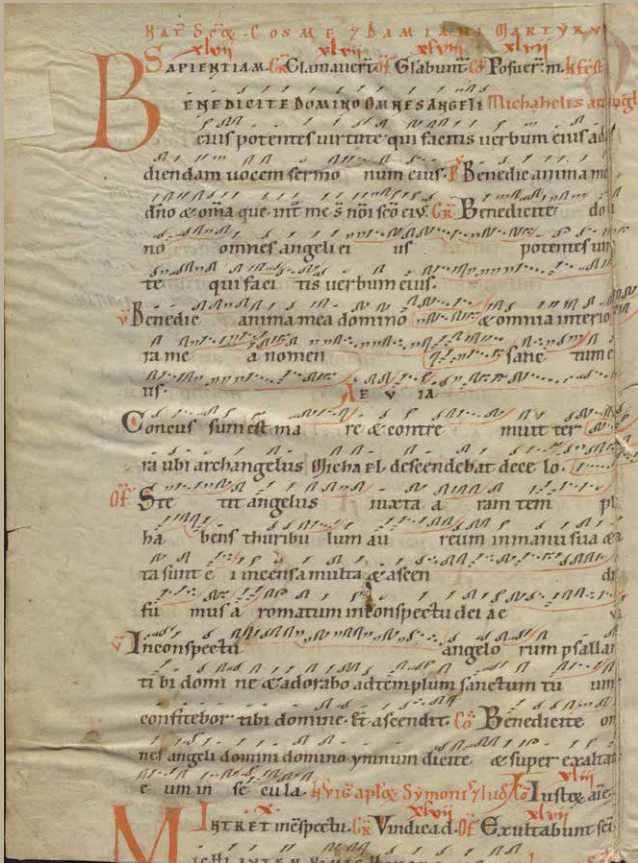 NAT SCOR COSME 7 DAMIANI MARTYRV
xlvii xlvii xlviii xlvii
SAPIENTIAM. GR Clamaver. OF Glabunt. CO Posuer. m. In fest
BENEDICITE DOMINO OMNES ANGELI Michahelis
eius potentes virtute qui facitis verbum eius ad
diendam vocem sermo num eius. Benedic anima me
dño & oma que int me s noi sco eius. GR Benedicite do
no omnes angeli ei us potentes vir
te qui faci tis verbum eius.
V Benedic anima mea domino & omnia interio
ra me a nomen sanc tum e
us. A E V IA
Concus sum est ma re & contre muit ter
ra ubi archangelus Michael descendebat de ce lo.
OF Ste tit angelus iuxta a ram tem pl
ha bens thuribu lum au reum in manu sua &
ta sunt e i incensa multa & ascen di
fu mus a romatum in conspectu dei ae
V In conspectu angelo rum psallā
ti bi domi ne & adorabo ad templum sanctum tu um
confitebor tibi domine. Et ascendit. CO Benedicite om
nes angeli domini domino ymnum dicite & super exaltat
e um in se cula. In vig aploR Symonis 7 Iude Iustoꝝ aīe. xliii
x xlvii xlvii
INTRET in cspectu. GR Vindica d. OF Exultabunt sci
M